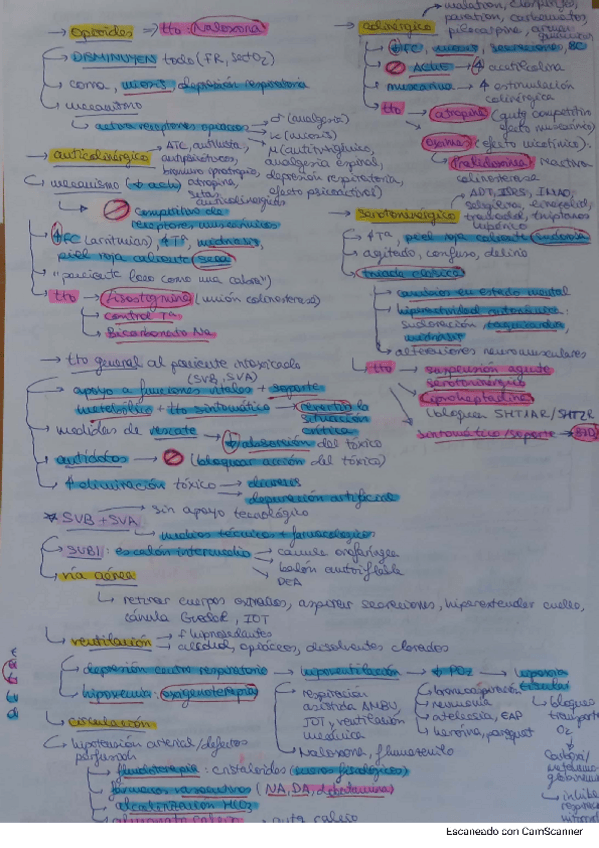 → opioides → tto: Naloxona
DISMINUYEN todo (FR, SectO2)
coma, miosis, depresión respiratoria
mecanismo
activa receptores opiáceos
σ (analgesia)
κ (miosis)
μ (antitusígeno,
analgesia espinal,
depresión respiratoria,
efecto psicoactivos)
→ anticolinérgico
ATC, antihista,
antipsicóticos,
bromuro ipratropio,
atropina,
setas
anticolinérgicas
mecanismo (↓ ach)
competitivo de
receptores muscarínicos
↑FC (arritmias), ↑Tª, midriasis,
piel roja caliente seca
"paciente loco como una cabra"
tto → fisostigmina (unión colinesterasa)
control Tª
Bicarbonato Na
→ colinérgico
malation,
paration, carbamatos,
pilocarpina,
↓FC, miosis, secreciones, BC
ACHE → ↑ acetilcolina
muscarina → ↑ estimulación
colinérgica
tto → atropina (antg competitivo
efecto muscarínico)
oximas (efecto nicotínico).
Pralidoxima: reactiva
colinesterasa
→ serotoninérgico
ADT, ISRS, IMAO,
linezolid,
tramadol, triptanos
↑Tª, piel roja caliente sudorosa
agitado, confuso, delirio
triada clásica
cambios en estado mental
hiperactividad autonómica:
sudoración, taquicardia,
midriasis
alteraciones neuromusculares
tto → suspensión agente
serotoninérgico
ciproheptadina
(bloquea 5HT1AR/5HT2R
sintomático/soporte → BZD
→ tto general al paciente intoxicado
(SVB, SVA)
apoyo a funciones vitales + soporte
metabólico + tto sintomático → revertir la
situación
crítica
medidas de rescate → ↓ absorción del tóxico
antídotos → (bloquear acción del tóxico)
↑ eliminación tóxico → diuresis
depuración artificial
* SVB + SVA → sin apoyo tecnológico
medios técnicos + farmacológicos
SVBI: escalón intermedio → cánula orofaríngea
balón autoinflable
DEA
vía aérea
retirar cuerpos extraños, aspirar secreciones, hiperextender cuello,
cánula Guedel, IOT
ventilación → hipnosedantes
alcohol, opiáceos, disolventes clorados
depresión centro respiratorio → hipoventilación → ↓ PO2 → hipoxia
tisular
hipoxemia: oxigenoterapia
respiración
asistida AMBU,
IOT, y ventilación
mecánica
Naloxona, flumazenilo
broncoaspiración
neumonía
atelectasia, EAP
heroína, paraquat
bloqueo
transporte
O2
carboxi/
meta
globinemia
circulación
hipotensión arterial/defectos
perfusión
fluidoterapia: cristaloides (sueros fisiológicos)
fármacos vasoactivos (NA, DA, dobutamina)
alcalinización HCO3
Escaneado con CamScanner